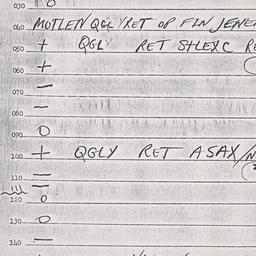 030 O
040 MOTLEN QGLY RET OP FLN
050 + QGLY RET STLEXC
060 +
070 –
080 –
090 O
100 + QGLY RET ASAX/
110 –
–
120 O
130 O
140 –